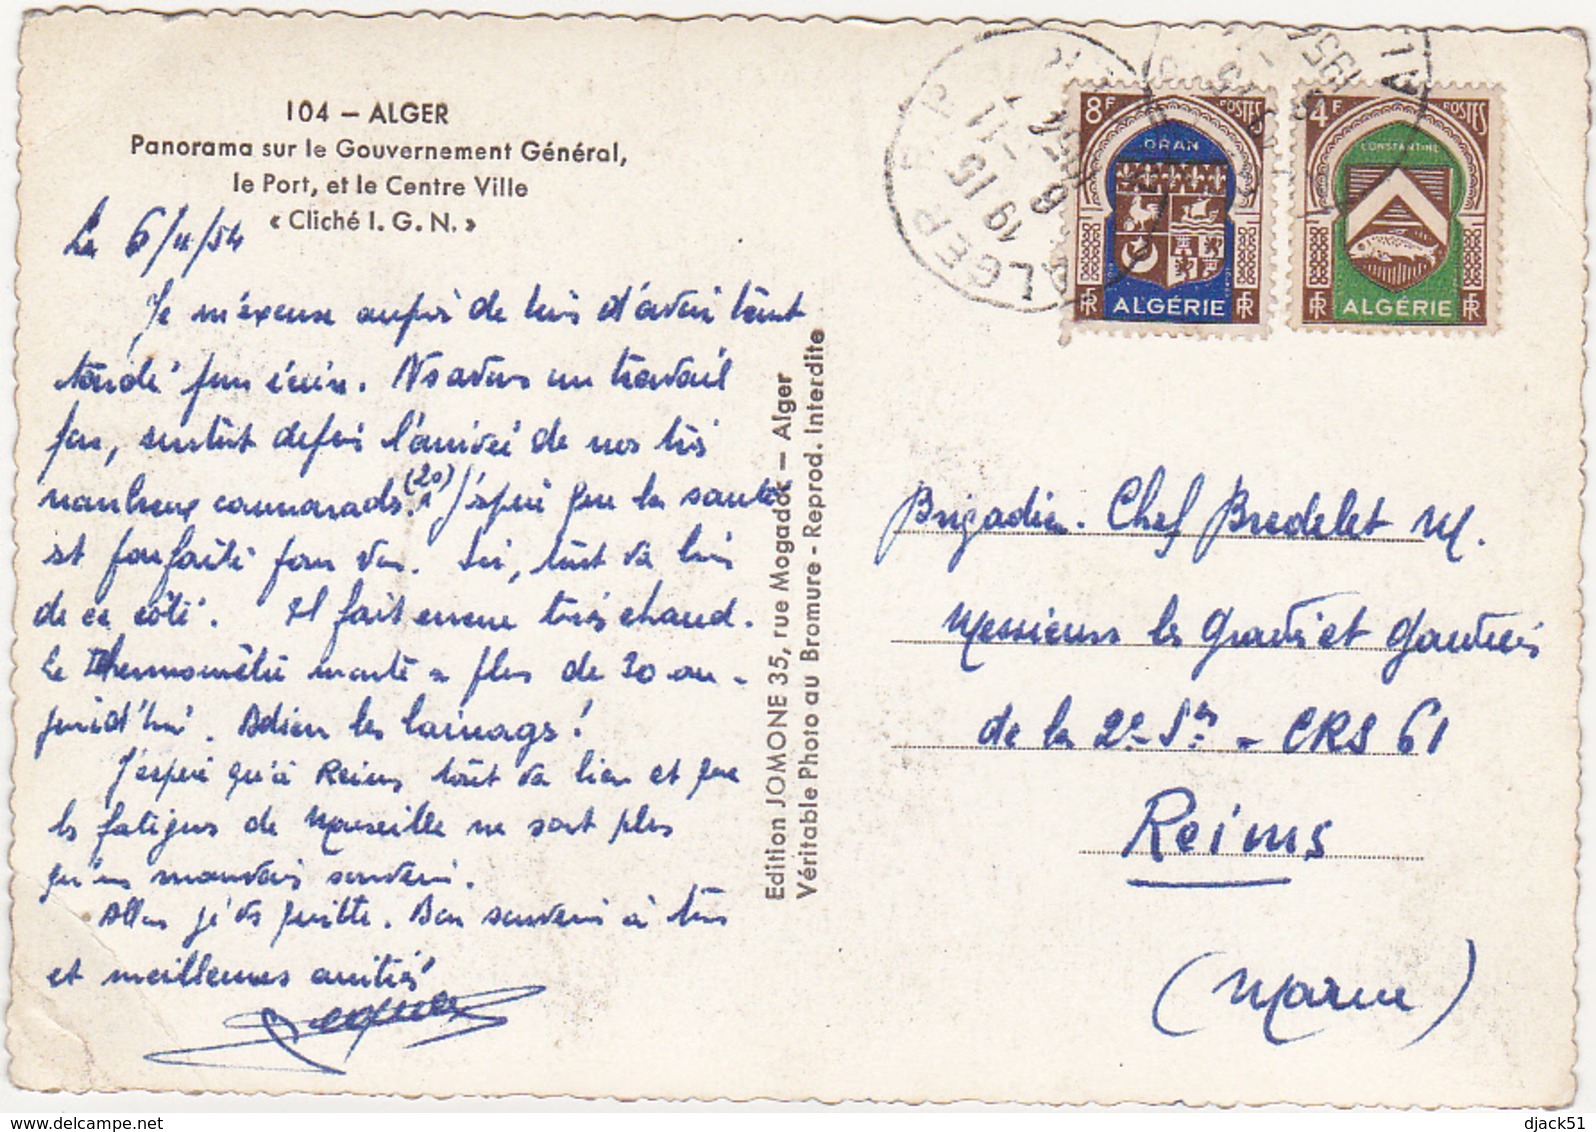 104 – ALGER
Panorama sur le Gouvernement Général,
le Port, et le Centre Ville
« Cliché I. G. N. »
Le 6/11/54
Je m'excuse auprès de tous d'avoir tant
tardé pour écrire. Ns avons un travail
fou, surtout depuis l'arrivée de nos très
nombreux camarades. (20) J'espère que la santé
est parfaite pour vous. Ici, tout va bien
de ce côté. Il fait encore très chaud.
Le Thermomètre monte à plus de 30 au-
jourd'hui. Adieu les lainages !
J'espère qu'à Reims tout va bien et que
les fatigues de Marseille ne sont plus
qu'un mauvais souvenir.
Allons je vs quitte. Bon souvenir à tous
et meilleures amitiés
Edition JOMONE 35, rue Mogador – Alger
Véritable Photo au Bromure - Reprod. Interdite
ALGER R.P
19 15
6 -11
8F POSTES
ORAN
ALGÉRIE
RF RF
4F POSTES
CONSTANTINE
ALGÉRIE
RF RF
Brigadier-Chef Bredelet M.
Messieurs les Gradés et Gardiens
de la 2e Son - CRS 61
Reims
(Marne)
delcampe.net
djack51